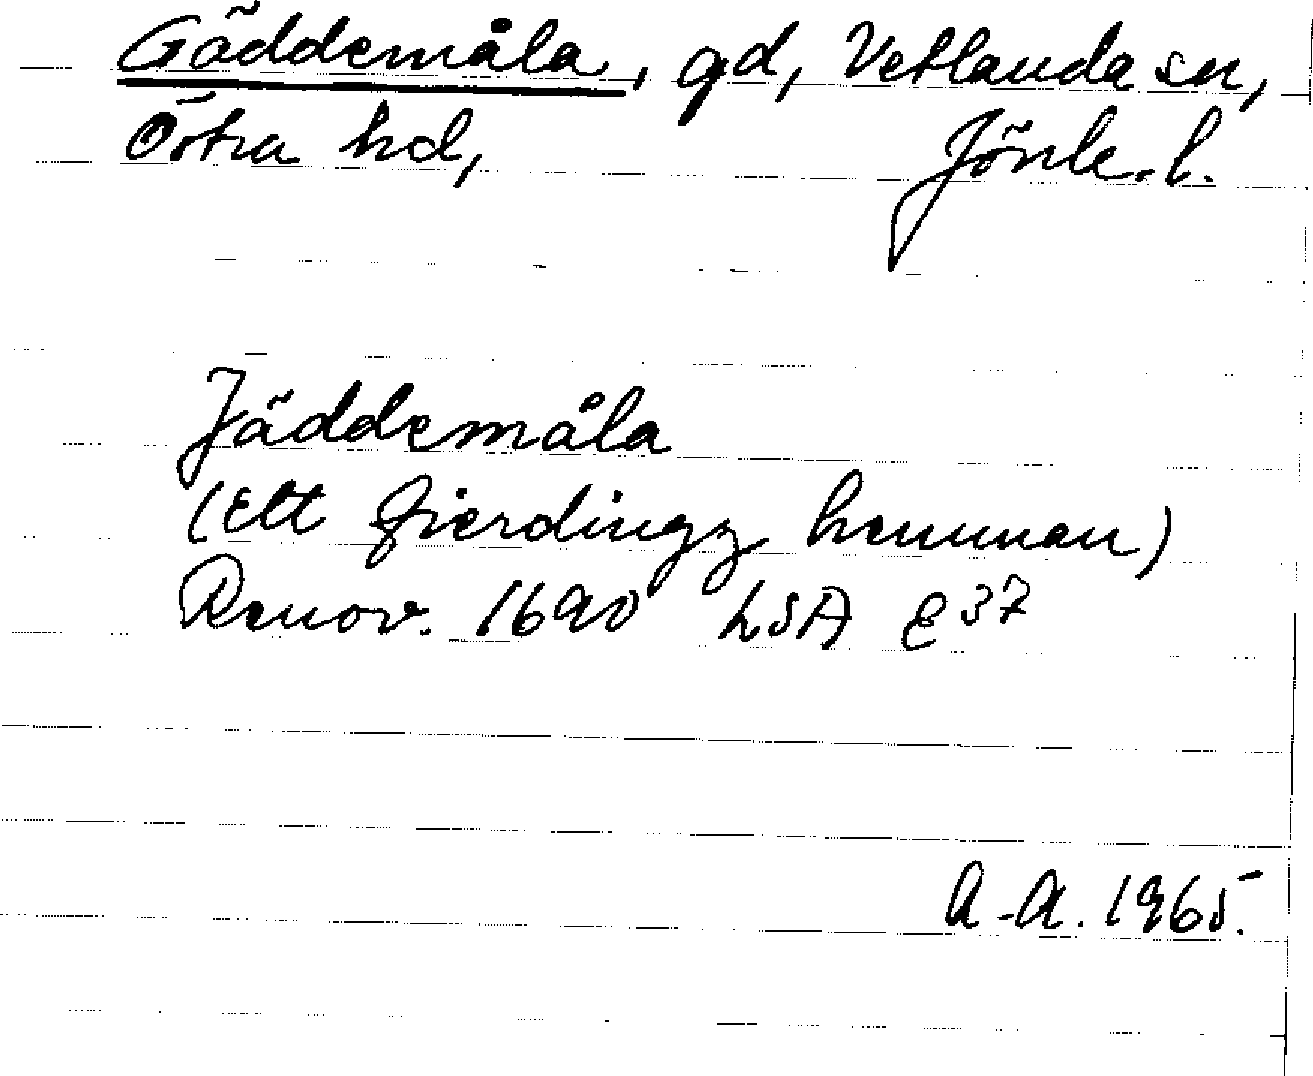 Gäddemåla, gd, Vetlanda sn,
Östra hd, Jönk. l.
Jäddemåla
(Ett fierdingz hemman)
Renov. 1690 LSA E37
A-A. 1965.